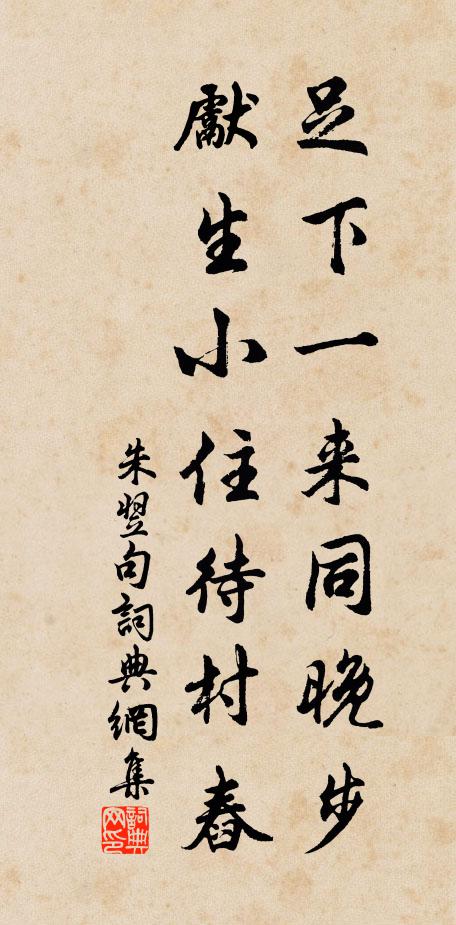 足下一来同晚步
獻生小住待村舂
朱翌句詞典網集
詞典网印